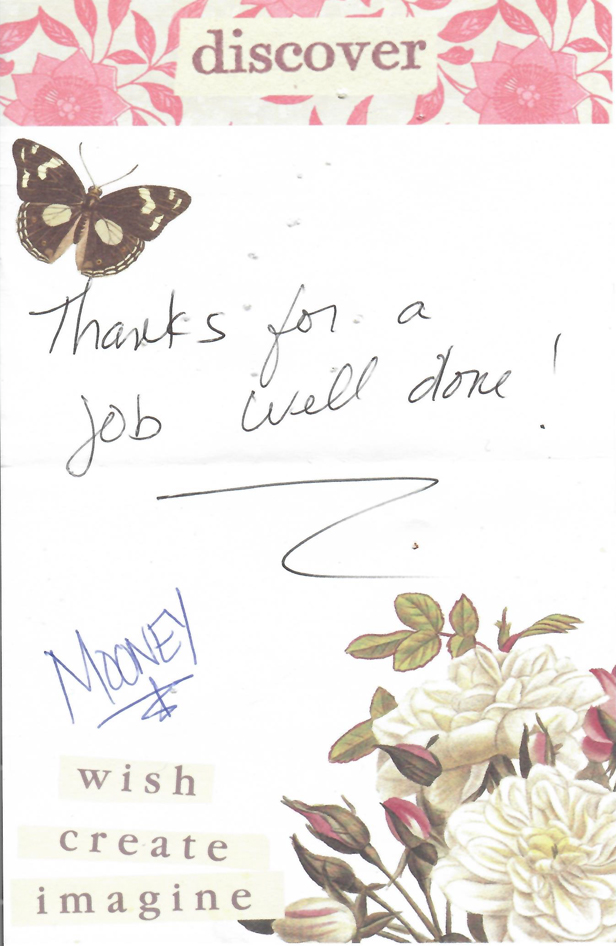 discover
Thanks for a
job well done!
MOONEY
wish
create
imagine